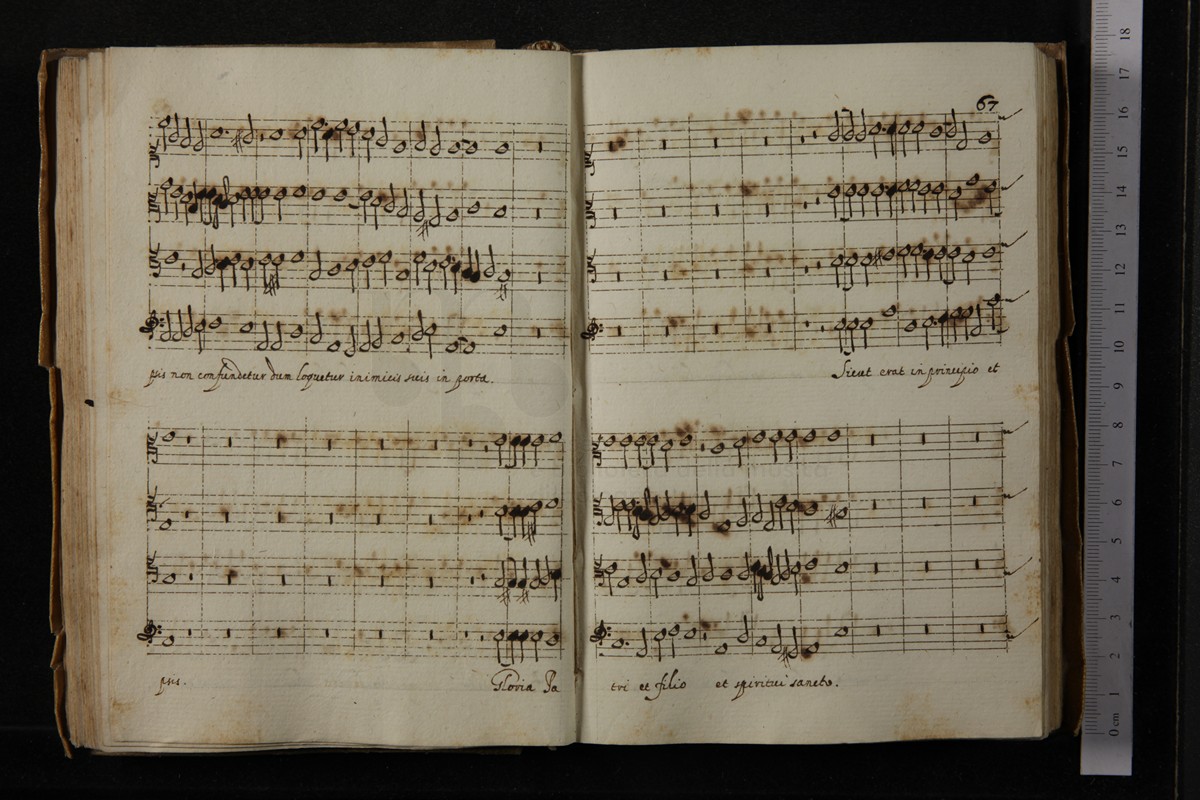 67
psis non confundetur dum loquetur inimicis suis in porta.
Sicut erat in principio et
psis.
Gloria Pa
tri et filio et spiritui sancto.
0 cm 1 2 3 4 5 6 7 8 9 10 11 12 13 14 15 16 17 18